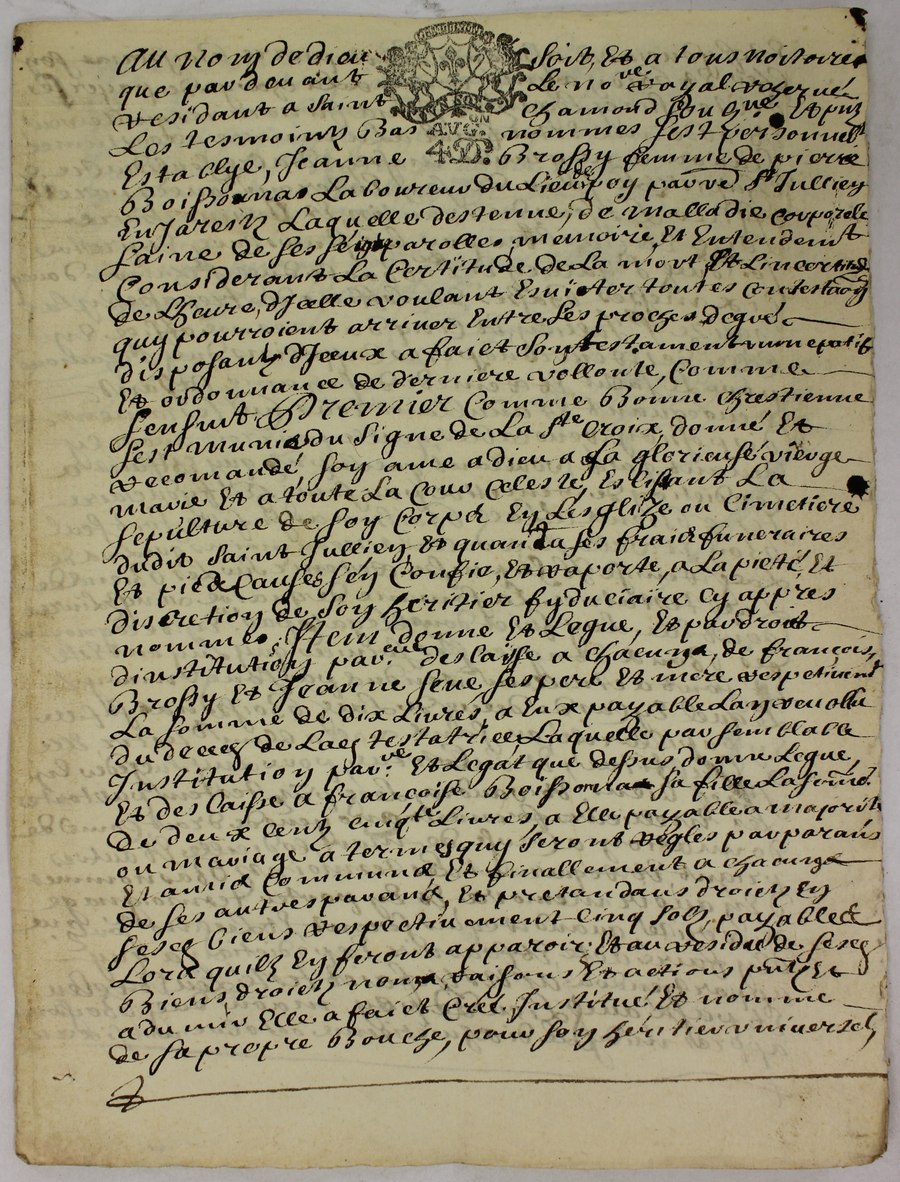 Au nom de dieu soit, Et a tous notoire
que par devant Le no.re royal reservé
residant a Saint Chamond soubz.né Et puis
Les tesmoins Bas nommés sest personnell.t
Establye, Jeanne Brossy femme de pierre
Boissonas Laboureur du Lieu de poy par.re St Jullien
En Jarestz Laquelle destenue, de malladie corporele
saine de ses sens parolles mémoire, Et Entendem.t
Considerant La Certitude de La mort Et Lincertitude
de Lheure, dJcelle voulant Esviter toutes contestaõns
quy pourroient arriver Entre ses proches de que
disposant dJceux a faict son testament nuncupatif
Et ordonnance de derniere vollonté, Comme
sensuit Premier comme Bonne chrestienne
sest munie du signe de La Ste Croix, donné Et
recomandé son ame a dieu a La glorieuse vierge
marie Et a toute La Cour Celeste, Eslisant La
sepulture de son Corps En Lesglize ou Cimetiere
dudit Saint Jullien, Et quand a ses frais funeraires
Et pies Causes sen Confie, Et raporte, a La pieté, Et
discretion de son heritier fyduciaire cy appres
nommé, Jtem donne Et Legue, Et par droit
dinstitution par.re deslaisse a chacung, de françois,
Brossy Et Jeanne seue, ses pere Et mere respetivem.t
La somme de dix Livres, a Eux payable Lan revollu
du deces de Lad. testatrice Laquelle par semblable
Institution par.re Et Legat que dessus, donne Legue,
Et deslaisse a françoise Boissonas sa fille La somme
de deux centz cinq.te Livres, a Elle payable a majorité
ou mariage a termes quy seront regles par parans
Et amis Communs Et finallement a chacung
de ses autres parans, Et pretandans droictz En
sesd. biens respectivement Cinq solz, payables
Lors quilz En feront apparoir, Et au residu de sesd.
Biens, droictz noms, raisons Et actions p.ntz Et
advenir Elle a faict Créé, Institué Et nommé
de sa propre Bouche, pour son héritier universel,
AUG.ON
4 D.